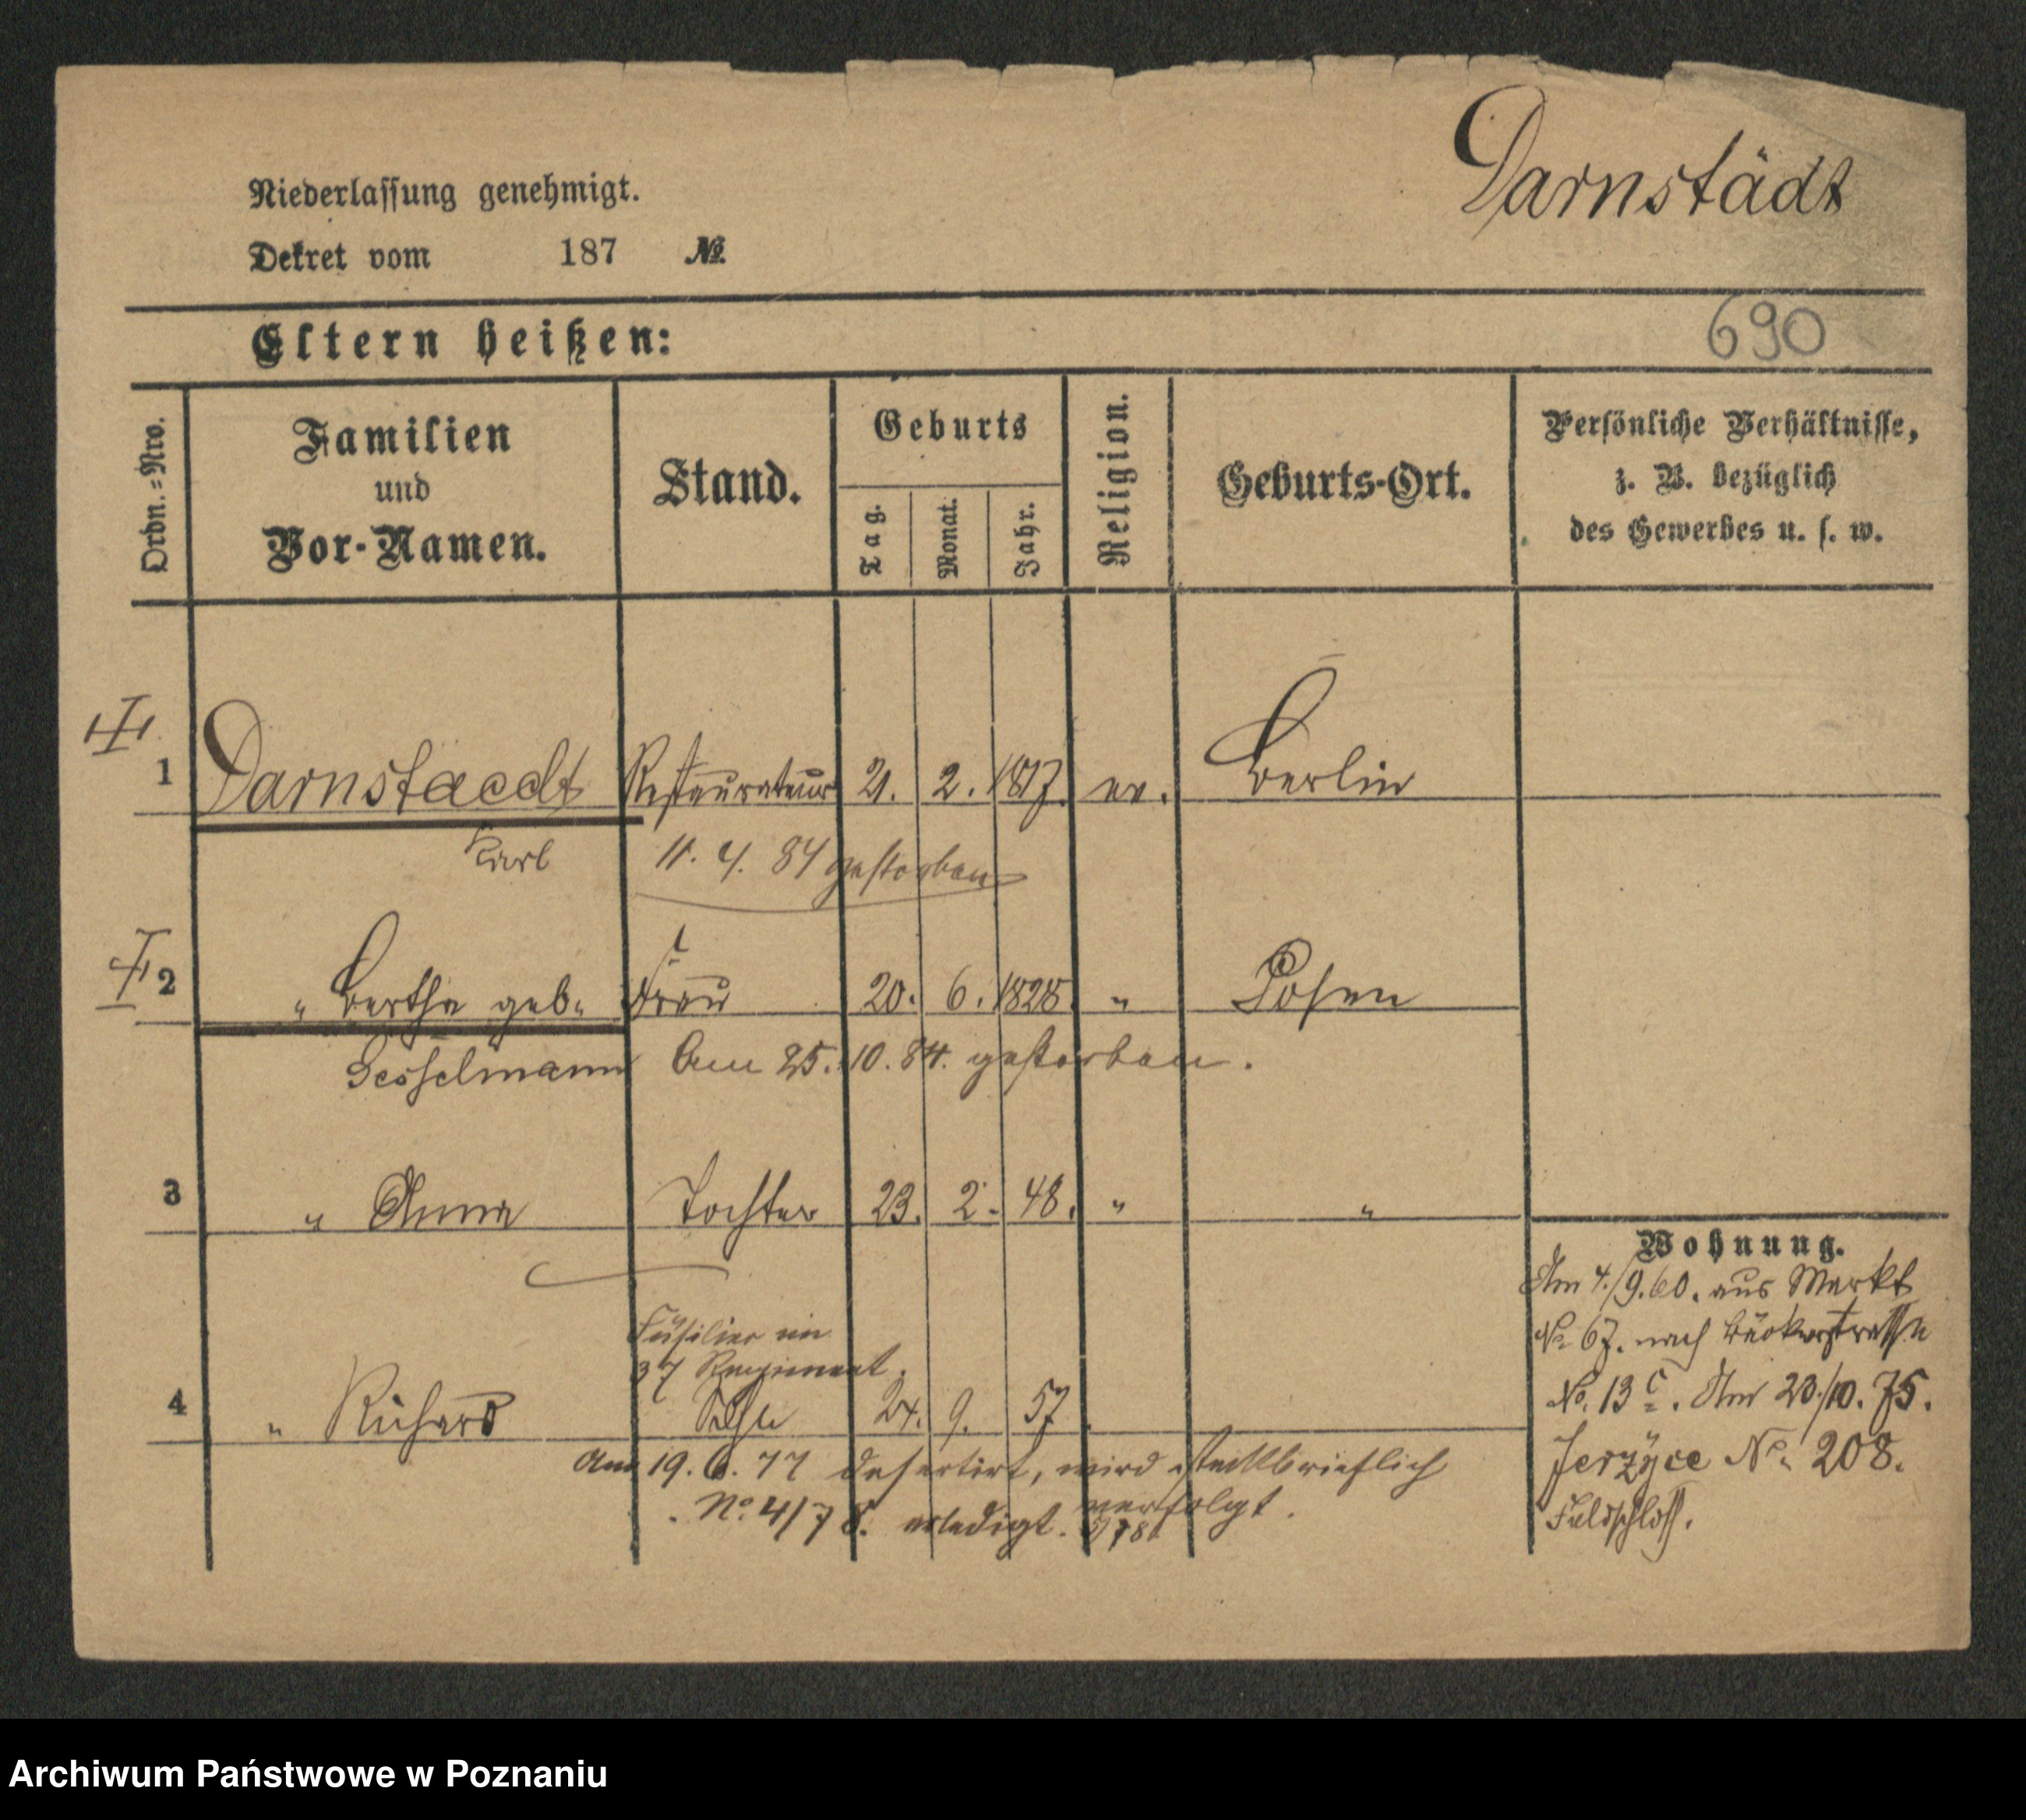 Darnstädt
Niederlassung genehmigt.
Dekret vom 187 No.
690
Eltern heißen:
Ordn.=Nro.
Familien
und
Vor-Namen.
Stand.
Geburts
Tag.
Monat.
Jahr.
Religion.
Geburts-Ort.
Persönliche Verhältnisse,
z. B. bezüglich
des Gewerbes u. s. w.
1 Darnstaedt Restaurateur 21. 2. 1817. ev. Berlin
Carl 11. 4. 84 gestorben
2 " Bertha geb. Frau 20. 6. 1828. " Posen
Gesselmann Am 25. 10. 84. gestorben.
3 " Anna Tochter 23. 2. 48. " "
Füsilier im
37 Regiment.
4 " Richard Sohn 24. 9. 57
Am 19. 6. 77 desertirt, wird steckbrieflich
verfolgt.
No. 4/78. erledigt.
Wohnung.
Am 4./9.60. aus Markt
No 67. nach Bäckerstrasse
No. 13 c. Am 23./10. 75.
Jerzÿce No. 208.
Feldschloß.
Archiwum Państwowe w Poznaniu